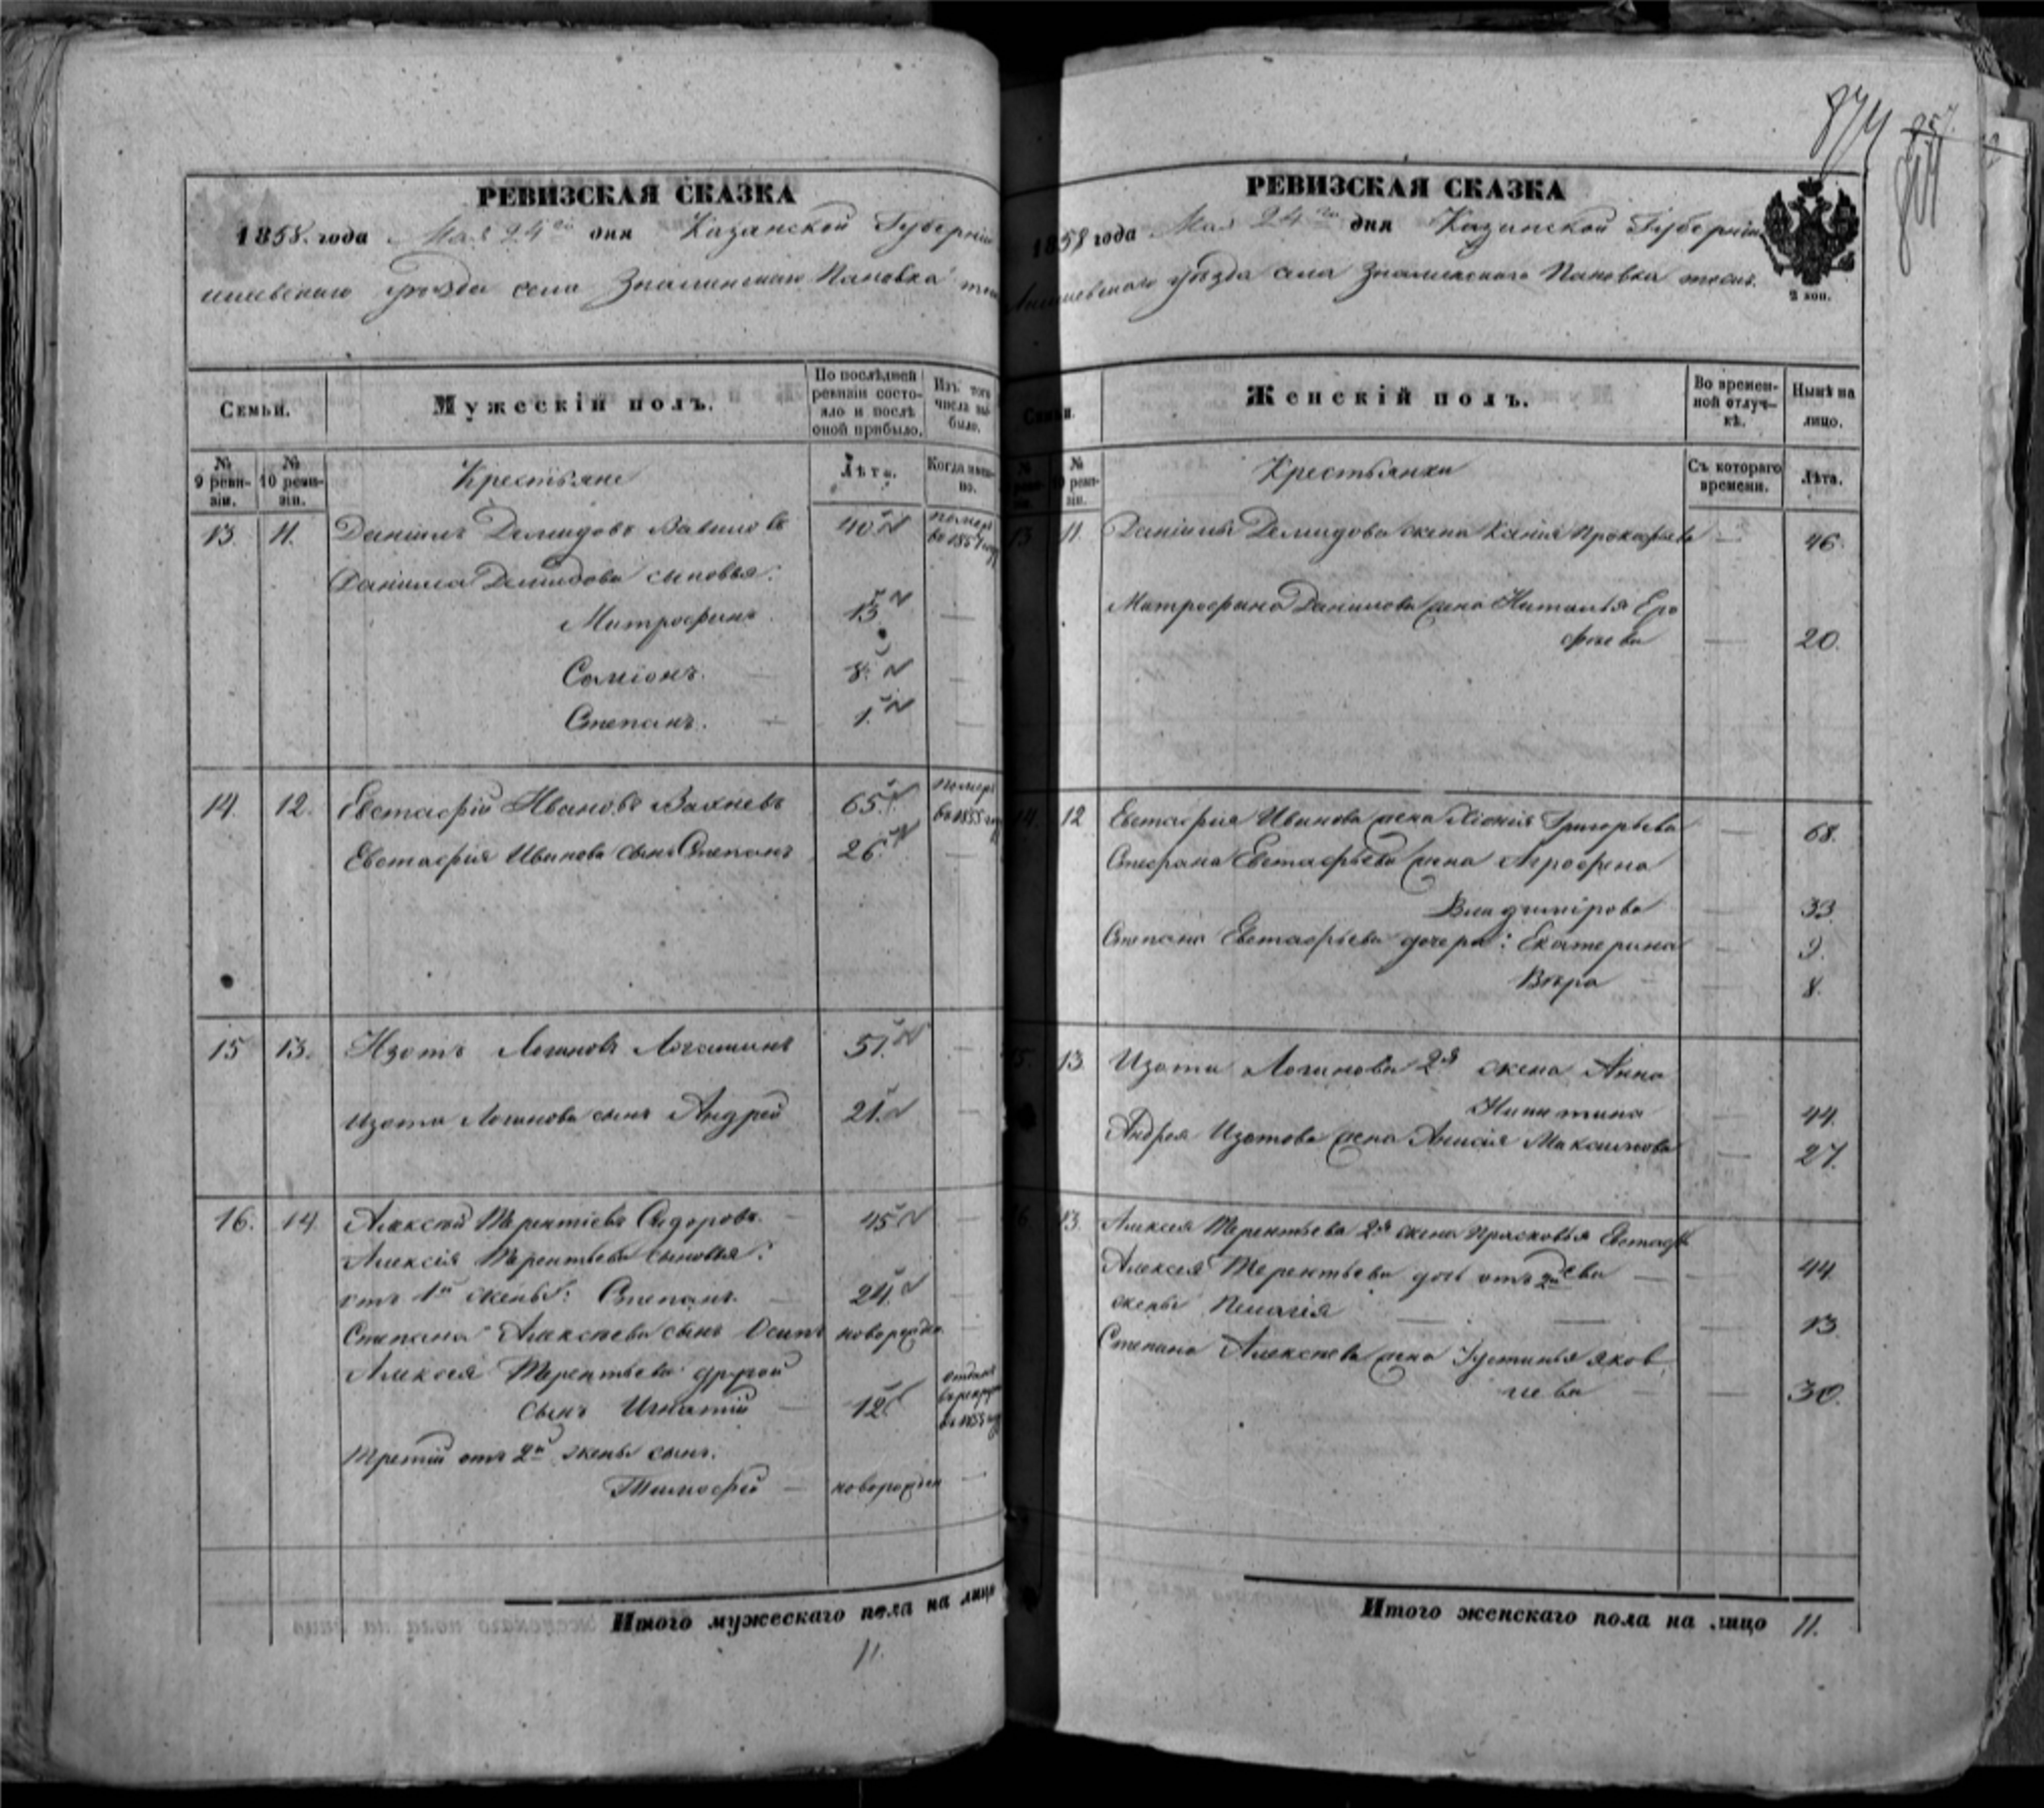 РЕВИЗСКАЯ СКАЗКА
1858. года Мая 24го дня Казанской Губерніи
шевскаго уѣзда села Знаменскаго Пановка тожъ
Семьи.
Мужескій полъ.
По послѣдней ревизіи состояло и послѣ оной прибыло.
Изъ того числа выбыло.
№ 9 ревизіи.
№ 10 ревизіи.
Крестьяне
Лѣта.
Когда именно.
13. 11. Даніилъ Демидовъ Вавиловъ 40 померъ въ 1857 году
Даниила Демидова сыновья:
Митрофанъ 13. —
Семіонъ. — 8. —
Степанъ. — 1. —
14. 12. Евстафій Ивановъ 65. померъ въ 1855 году
Евстафія Иванова сынъ Степанъ 26. —
15 13. Изотъ Логиновъ 51. —
Изота Логинова сынъ Андрей 21. —
16. 14. Алексей Терентіевъ Сидоровъ. — 45 —
Алексія Терентьева сыновья:
отъ 1й жены: Степанъ. — 24. —
Степана Алексѣева сынъ Осипъ новорожден. —
Алексея Терентьева другой
сынъ Игнатій — 12 отданъ въ рекруты въ 1855 году
Третій отъ 2й жены сынъ.
Тимофей — новорожден —
Итого мужескаго пола на лицо
11.
874
РЕВИЗСКАЯ СКАЗКА
1858 года Мая 24го дня Казанской Губерніи
уѣзда села Знаменскаго Пановка тожъ.
2 коп.
Семьи.
Женскій полъ.
Во временной отлучкѣ.
Нынѣ на лицо.
№ ревизіи.
№ 10 ревизіи.
Крестьянки
Съ котораго времени.
Лѣта.
13 11. Даніила Демидова жена Прокофьева — 46.
Митрофана Данилова жена Наталья Еро
фѣева — 20.
14. 12 Евстафія Иванова жена Григорьева — 68.
Стефана Евстафьева жена Агрофена
Владимірова — 33.
Степана Евстафьева дочери: Екатерина — 9.
Вѣра — 8.
15. 13. Изота Логинова 2я жена Анна
Никитина — 44.
Андрея Изотова жена Анисія Максимова — 27.
16. 13. Алексея Терентьева 2я жена Прасковья Евстафь
ева — 44.
Алексея Терентьева дочь отъ 2й
жены Пелагія — 13.
Степана Алексѣева жена Устинья Яков
лева — 30.
Итого женскаго пола на лицо 11.